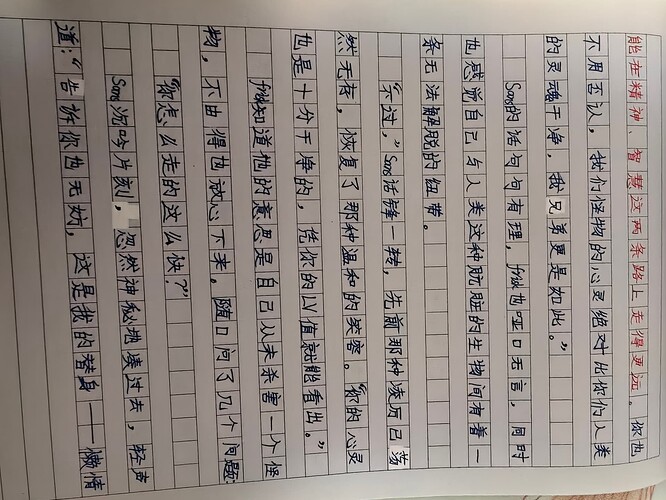 能在精神、智慧这两条路上走得更远。你也
不用否认，我们怪物的心灵绝对比你们人类
的灵魂干净，我兄弟更是如此。”
Sans的话句句有理，frisk也哑口无言，同时
也感觉自己与人类这种肮脏的生物间有着一
条无法解脱的纽带。
“不过，”Sans话锋一转，先前那种凌厉已荡
然无存，恢复了那种温和的笑容。“你的心灵
也是十分干净的，凭你的LV值就能看出。”
frisk知道他的意思是自己从未杀害一个怪
物，不由得也放心下来。随口问了几个问题
“你怎么走的这么快？”
Sans沉吟片刻，忽然神秘地凑过去，轻声
道：“告诉你也无妨，这是我的替身——懒惰